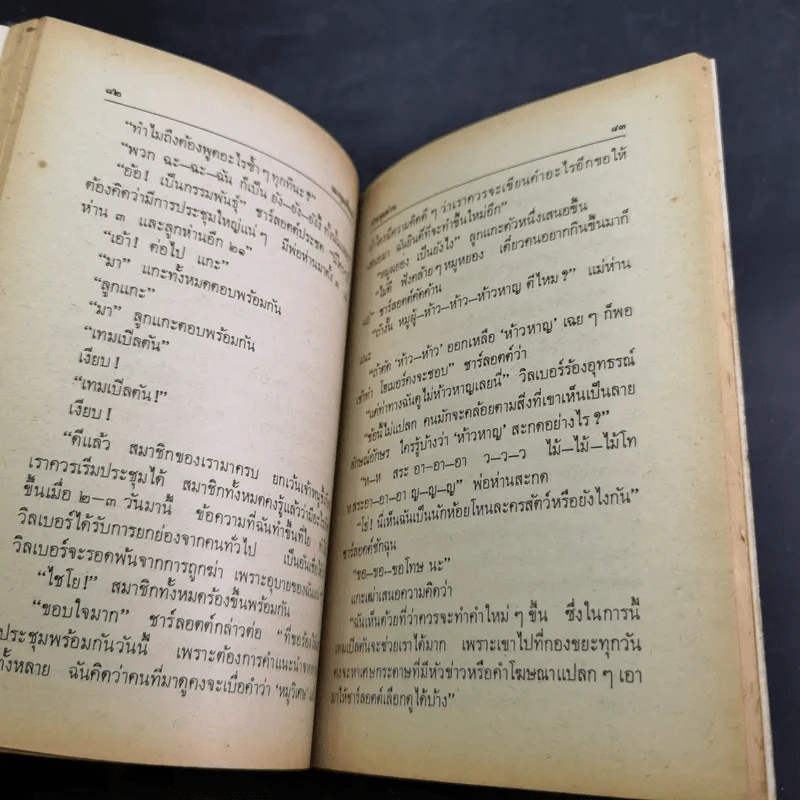 ๘๒
“ทำไมถึงต้องพูดอะไรซ้ำๆ ทุกทีนะ”
“พวก ฉะ–ฉะ–ฉัน ก็เป็น ยัง–ยัง–ยังงี้
“อ้อ! เป็นกรรมพันธุ์” ชาร์ลอตต์ประชด
ต้องคิดว่ามีการประชุมใหญ่แน่ๆ มีพ่อห่านมาทั้ง
ห่าน ๓ และลูกห่านอีก ๒๑”
“เอ้า! ต่อไป แกะ”
“มา” แกะทั้งหมดตอบพร้อมกัน
“ลูกแกะ”
“มา” ลูกแกะตอบพร้อมกัน
“เทมเปิลตัน”
เงียบ!
“เทมเปิลตัน!”
เงียบ!
“ดีแล้ว สมาชิกของเรามาครบ ยกเว้นเจ้าหนู
เราควรเริ่มประชุมได้ สมาชิกทั้งหมดคงรู้แล้วว่ามีอะไร
ขึ้นเมื่อ ๒–๓ วันมานี้ ข้อความที่ฉันทำขึ้นที่ใย
วิลเบอร์ได้รับการยกย่องจากคนทั่วไป เป็นอัน
วิลเบอร์จะรอดพ้นจากการถูกฆ่า เพราะอุบายของฉัน
“ไชโย!” สมาชิกทั้งหมดร้องขึ้นพร้อมกัน
“ขอบใจมาก” ชาร์ลอตต์กล่าวต่อ “ที่ขอร้อง
ประชุมพร้อมกันวันนี้ เพราะต้องการคำแนะนำจาก
ทั้งหลาย ฉันคิดว่าคนที่มาดูคงจะเบื่อคำว่า ‘หมูวิเศษ’
๘๓
ถ้าใครมีความคิดดีๆ ว่าเราควรจะเขียนคำอะไรอีกขอให้
เสนอมา ฉันยินดีที่จะทำขึ้นใหม่อีก”
“หมูหยอง เป็นยังไง” ลูกแกะตัวหนึ่งเสนอขึ้น
“ไม่ดี ฟังคล้ายๆ หมูหยอง เดี๋ยวคนอยากกินขึ้นมาก็
ชาร์ลอตต์คัดค้าน
“ยังงั้น หมูผู้–ห้าว–ห้าว–ห้าวหาญ ดีไหม?” แม่ห่าน
แนะ
“ถ้าตัด ‘ห้าว–ห้าว’ ออกเหลือ ‘ห้าวหาญ’ เฉยๆ ก็พอ
เข้าท่า โฮเมอร์คงจะชอบ” ชาร์ลอตต์ว่า
“แต่ท่าทางฉันดูไม่ห้าวหาญเลยนี่” วิลเบอร์ร้องอุทธรณ์
“ข้อนี้ไม่แปลก คนมักจะคล้อยตามสิ่งที่เขาเห็นเป็นลาย
ลักษณ์อักษร ใครรู้บ้างว่า ‘ห้าวหาญ’ สะกดอย่างไร?”
“ห–ห สระ อา–อา–อา ว–ว–ว ไม้–ไม้–ไม้โท
ห สระอา–อา–อา ญ–ญ–ญ” พ่อห่านสะกด
“โธ่! นี่เห็นฉันเป็นนักห้อยโหนละครสัตว์หรือยังไงกัน”
ชาร์ลอตต์ชักฉุน
“ขอ–ขอ–ขอโทษ นะ”
แกะเฒ่าเสนอความคิดว่า
“ฉันเห็นด้วยที่ว่าควรจะทำคำใหม่ๆ ขึ้น ซึ่งในการนี้
เทมเปิลตันจะช่วยเราได้มาก เพราะเขาไปที่กองขยะทุกวัน
คงจะหาเศษกระดาษที่มีหัวข่าวหรือคำโฆษณาแปลกๆ เอา
มาให้ชาร์ลอตต์เลือกดูได้บ้าง”